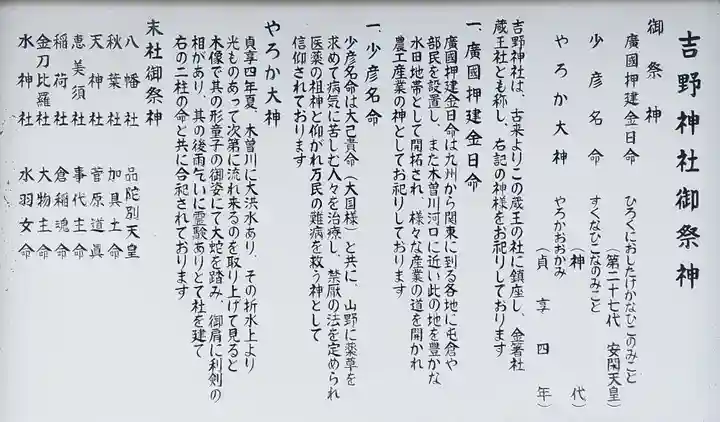 吉野神社御祭神
御祭神
廣國押建金日命 ひろくにおしたけかなひこのみこと
(第二十七代 安閑天皇)
少彦名命 すくなひこなのみこと
(神代)
やろか大神 やろかおおかみ
(貞享四年)
吉野神社は、古来よりこの蔵王の社に鎮座し、金箸社
蔵王社とも称し、右記の神様をお祀りしております
一、廣國押建金日命
廣國押建金日命は九州から関東に到る各地に屯倉や
部民を設置し、また木曽川河口に近い此の地を豊かな
水田地帯として開拓され、様々な産業の道を開かれ
農工産業の神としてお祀りしております
一、少彦名命
少彦名命は大己貴命(大国様)と共に、山野に薬草を
求めて病気に苦しむ人々を治療し、禁厭の法を定められ
医薬の祖神と仰がれ万民の難病を救う神として
信仰されております
やろか大神
貞享四年夏、木曽川に大洪水あり、その折水上より
光ものあって次第に流れ来るのを取り上げて見ると
木像で其の形童子の御姿にて大蛇を踏み、御肩に利剣の
相があり、其の後雨乞いに霊験ありとて社を建て
右の二柱の命と共に合祀されております
末社御祭神
八幡社 品陀別天皇
秋葉社 加具土命
天神社 菅原道眞
恵美須社 事代主命
稲荷社 倉稲魂命
金刀比羅社 大物主命
水神社 水羽女命